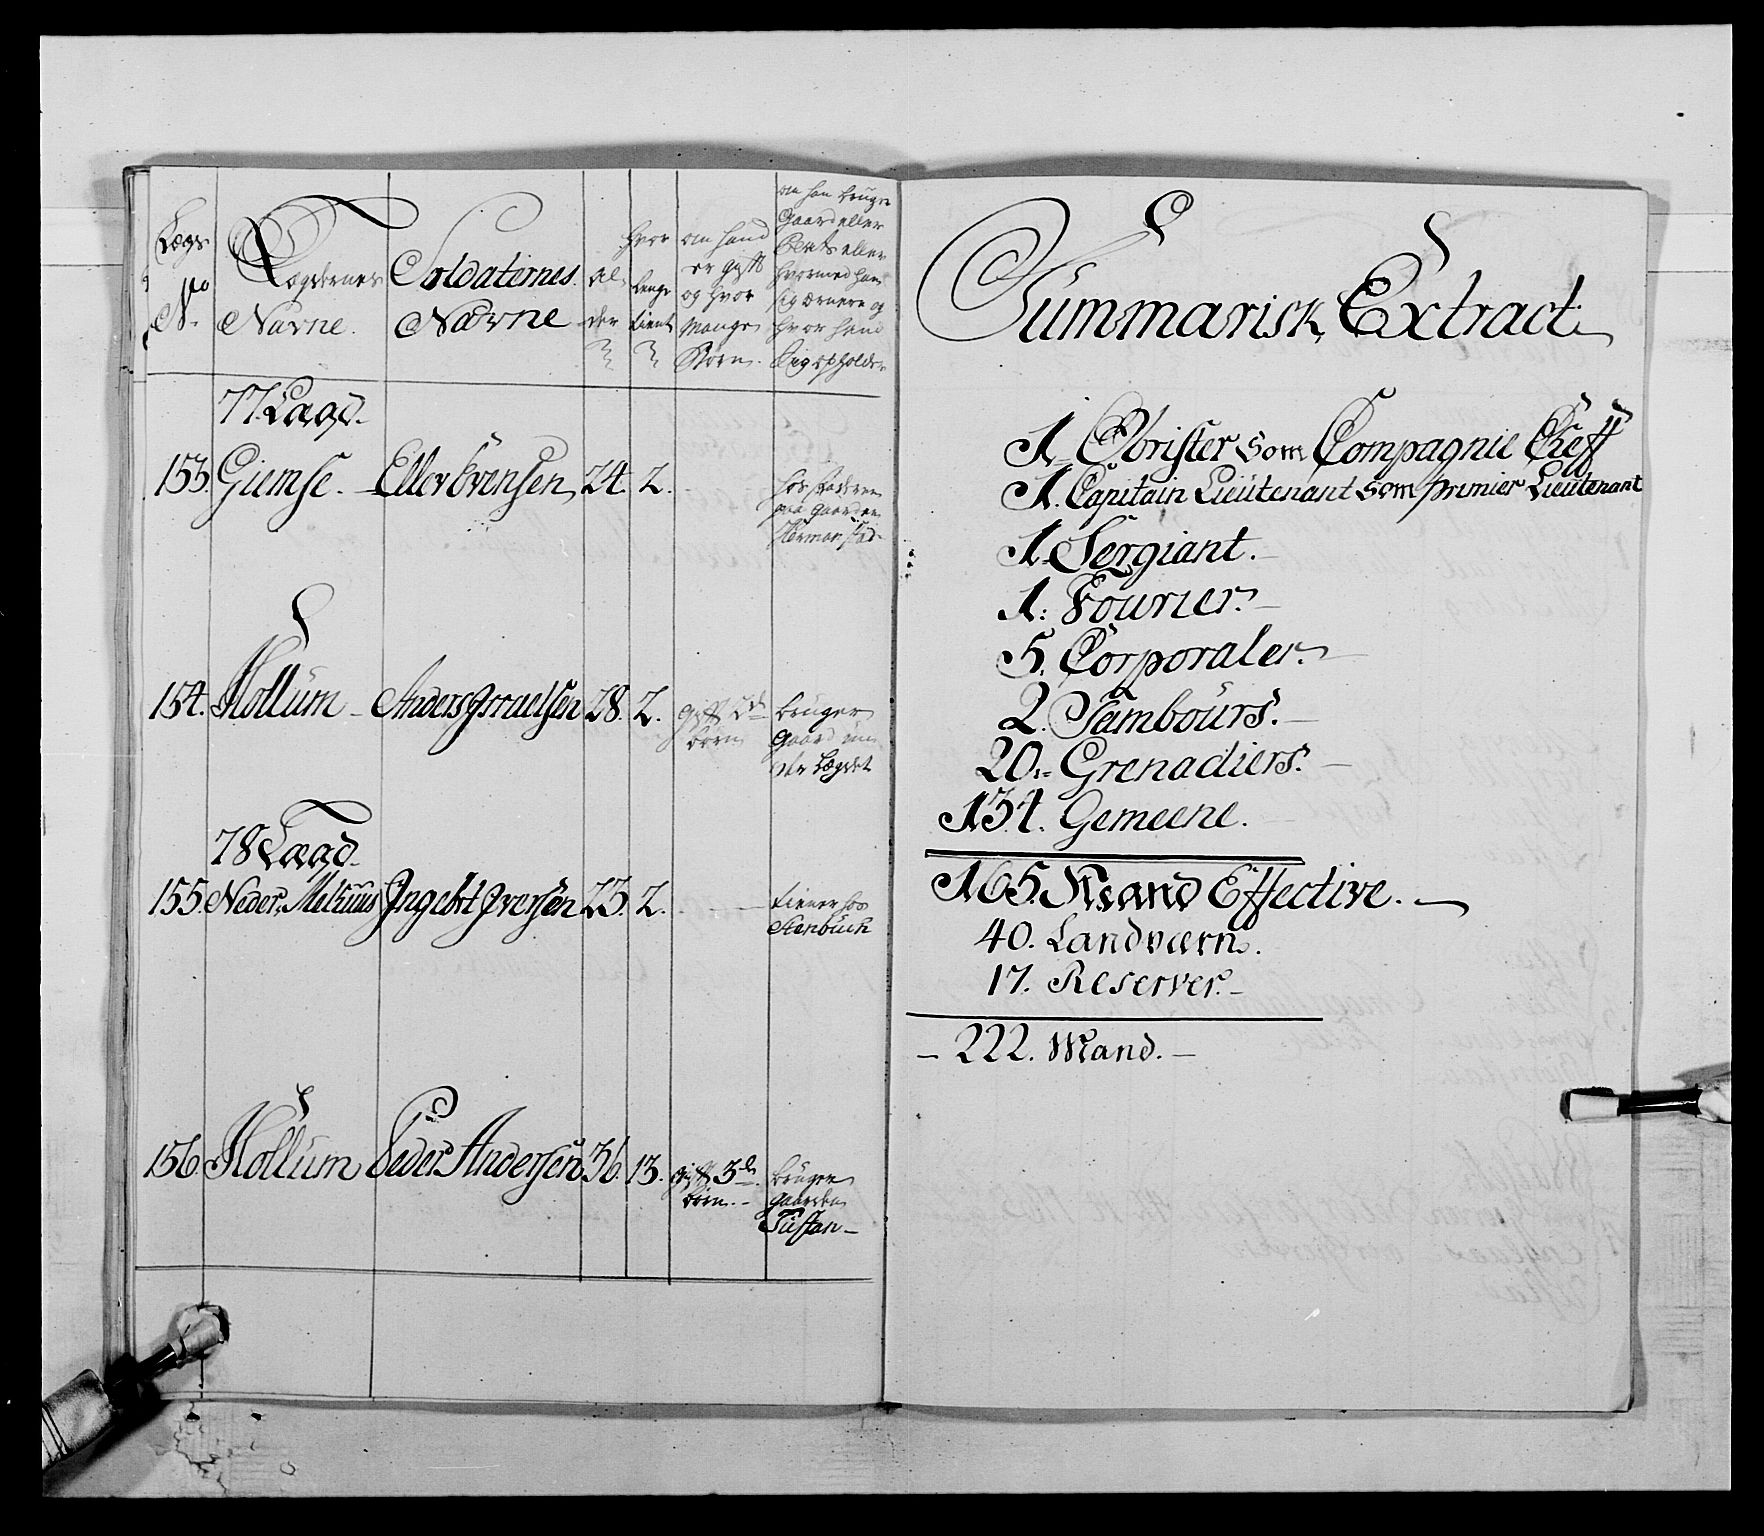 Lægs No
Lægdernes Navne.
Soldaternes Navne
Alder
hvor lenge tient
om hand er gift og hvor mange Børn.
om han bruger Gaard eller Plads eller hvormed han sig ernere og hvor hand sig opholder
77 Lægd.
153. Giemse. Eller Evensen 24. 2. hos faderen
paa Gaarden
154. Hollum Anders Israelsen 28. 2. gift 2de bruger
børn Gaard un
der Lægdet
78 Lægd
155. Neder, Melhuus Ingebrt Iversen 23. 2. tiener hos
Stenbuch
156. Hollum Peder Andersen 36. 13. gift 3de bruger
børn gaarden
Tustan
Summarisk Extract
1. Obrister som Compagnie Cheff
1. Capitain Lieutenant som premier Lieutenant
1. Sergiant.
1. Fourier.
5. Corporaler.
2. Tambours.
20. Grenadiers.
134. Gemeene.
165. Mand Effective.
40. Landværn.
17. Reserver.
222. Mand.